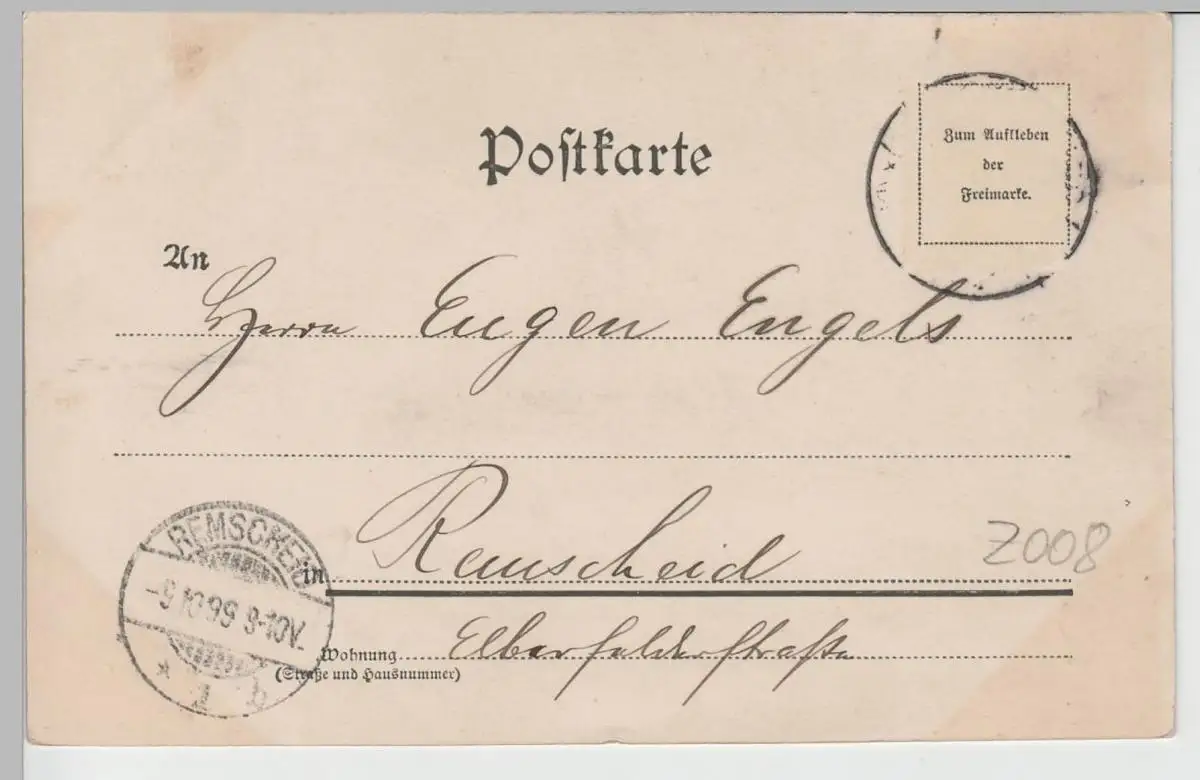 Postkarte
Zum Aufkleben
der
Freimarke.
An
Herrn Eugen Engels
in Remscheid
Wohnung Elberfelderstraße
(Straße und Hausnummer)
REMSCHEID
-9.10.99 9-10V.
* 1 b
Z008